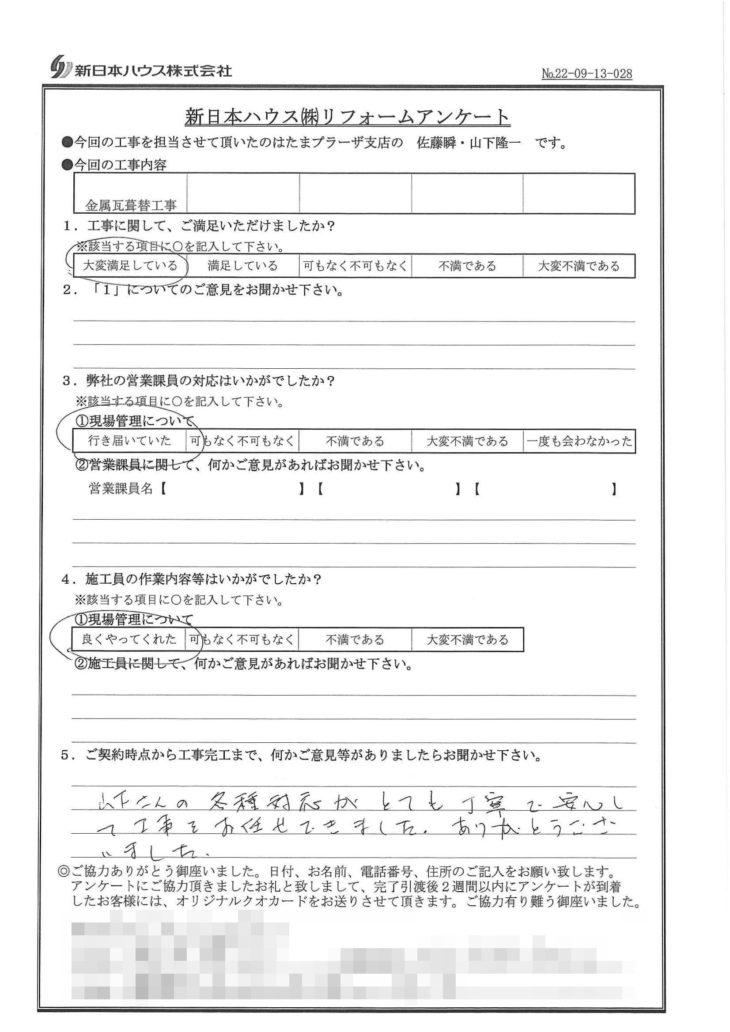 新日本ハウス株式会社
№22-09-13-028
新日本ハウス㈱リフォームアンケート
●今回の工事を担当させて頂いたのはたまプラーザ支店の 佐藤瞬・山下隆一 です。
●今回の工事内容
金属瓦葺替工事
1．工事に関して、ご満足いただけましたか？
※該当する項目に○を記入して下さい。
大変満足している 満足している 可もなく不可もなく 不満である 大変不満である
2．「1」についてのご意見をお聞かせ下さい。
3．弊社の営業課員の対応はいかがでしたか？
※該当する項目に○を記入して下さい。
①現場管理について
行き届いていた 可もなく不可もなく 不満である 大変不満である 一度も会わなかった
②営業課員に関して、何かご意見があればお聞かせ下さい。
営業課員名【 】【 】【 】
4．施工員の作業内容等はいかがでしたか？
※該当する項目に○を記入して下さい。
①現場管理について
良くやってくれた 可もなく不可もなく 不満である 大変不満である
②施工員に関して、何かご意見があればお聞かせ下さい。
5．ご契約時点から工事完工まで、何かご意見等がありましたらお聞かせ下さい。
山下さんの各種対応がとても丁寧で安心し
て工事をお任せできました。ありがとうござ
いました。
◎ご協力ありがとう御座いました。日付、お名前、電話番号、住所のご記入をお願い致します。
アンケートにご協力頂きましたお礼と致しまして、完了引渡後２週間以内にアンケートが到着
したお客様には、オリジナルクオカードをお送りさせて頂きます。ご協力有り難う御座いました。